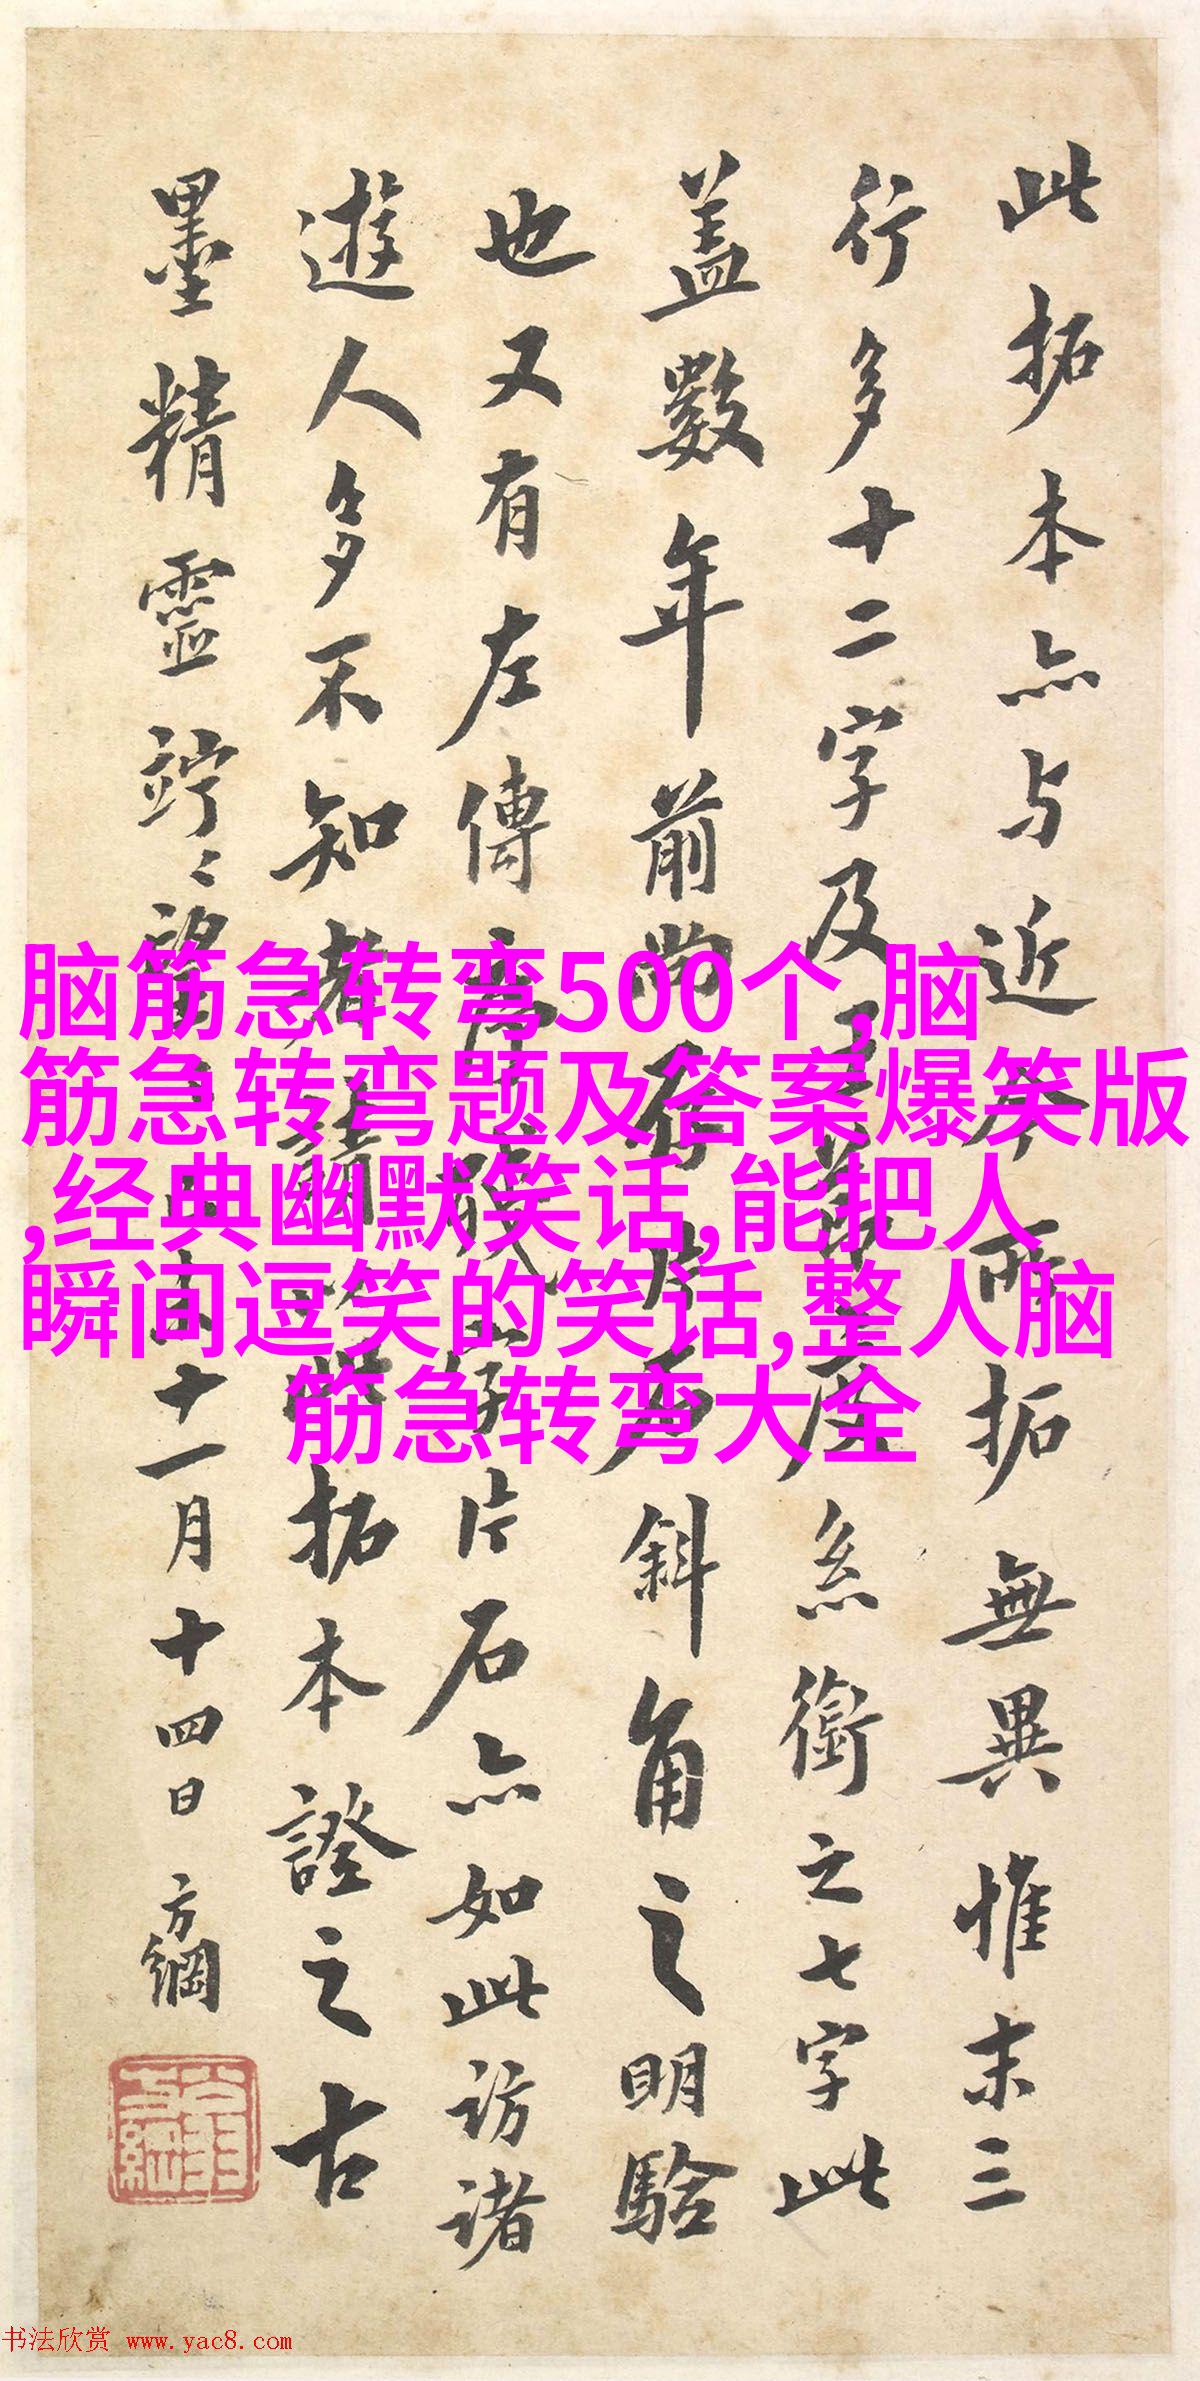 此拓本亦与近今所拓無異惟末三
行多十二字及
絲銜之七字此
蓋數年前尚
斜角之明驗
也又有左傳
字片石亦如此訪諸
遊人多不知者
拓本證之古
墨精靈竚〻
十一月十四日 方綱
脑筋急转弯500个,脑
筋急转弯题及答案爆笑版
,经典幽默笑话,能把人
瞬间逗笑的笑话,整人脑
筋急转弯大全
书法欣赏 www.yac8.com